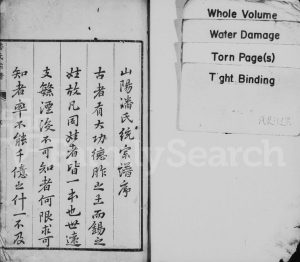 山陽潘氏統宗譜序
古者有大功德胙之土而錫之
姓故凡同姓者皆一本也世遠
支繁湮沒不可知者何限求可
知者率不能千億之什一不及
Whole Volume
Water Damage
Torn Page(s)
Tight Binding
FamilySearch